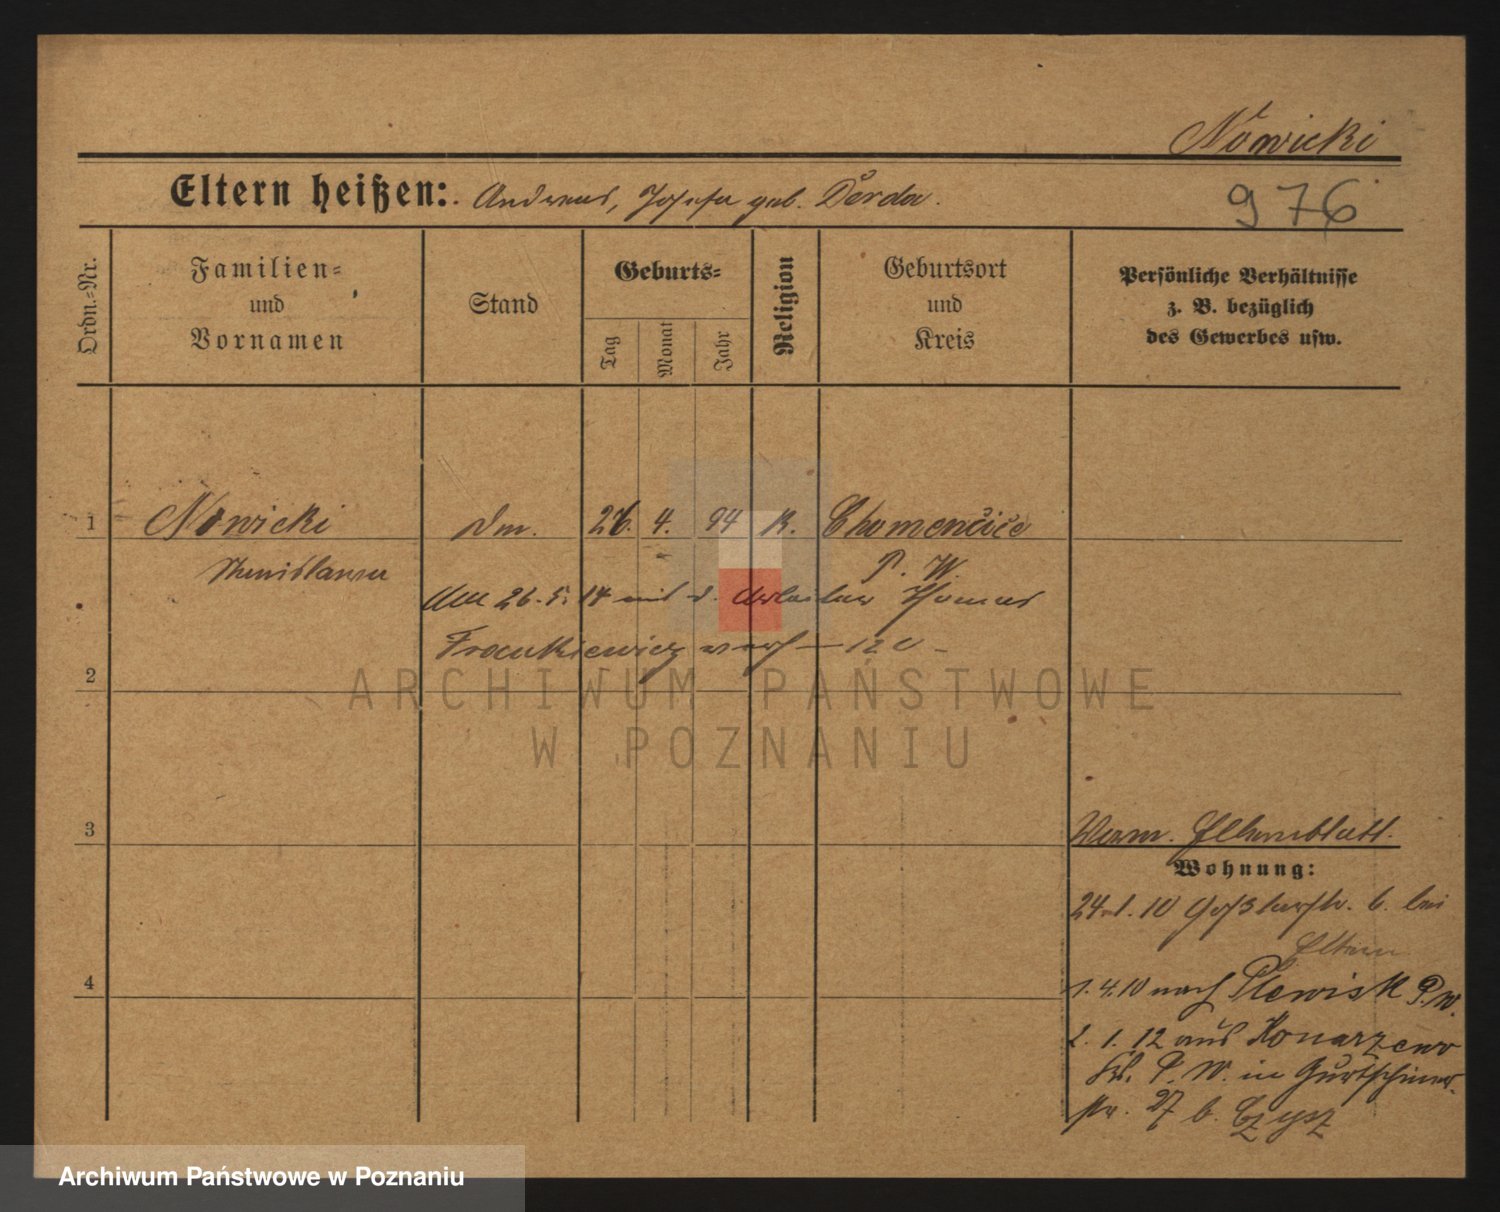 Nowicki
Eltern heißen: Andreas, Josefa geb. Derda.
976
Ordn.-Nr.
Familien-
und
Vornamen
Stand
Geburts-
Tag
Monat
Jahr
Religion
Geburtsort
und
Kreis
Persönliche Verhältnisse
z. B. bezüglich
des Gewerbes usw.
1 Nowicki Dm. 26. 4. 94 K. Chomencice
Stanislawa P. W.
Am 26. 5. 14 mit d. Arbeiter Thomas
Frankiewicz verh
2
ARCHIWUM PAŃSTWOWE
W POZNANIU
3
Verm. Elternblatt.
Wohnung:
24. 1. 10 Goßlerstr. 6. bei
Eltern
4
1. 4. 10 nach Plewisk P. W.
2. 1. 12 aus Konarzewo
Krs. P. W. in Gurtschiner-
str. 27 b. Czysz
Archiwum Państwowe w Poznaniu